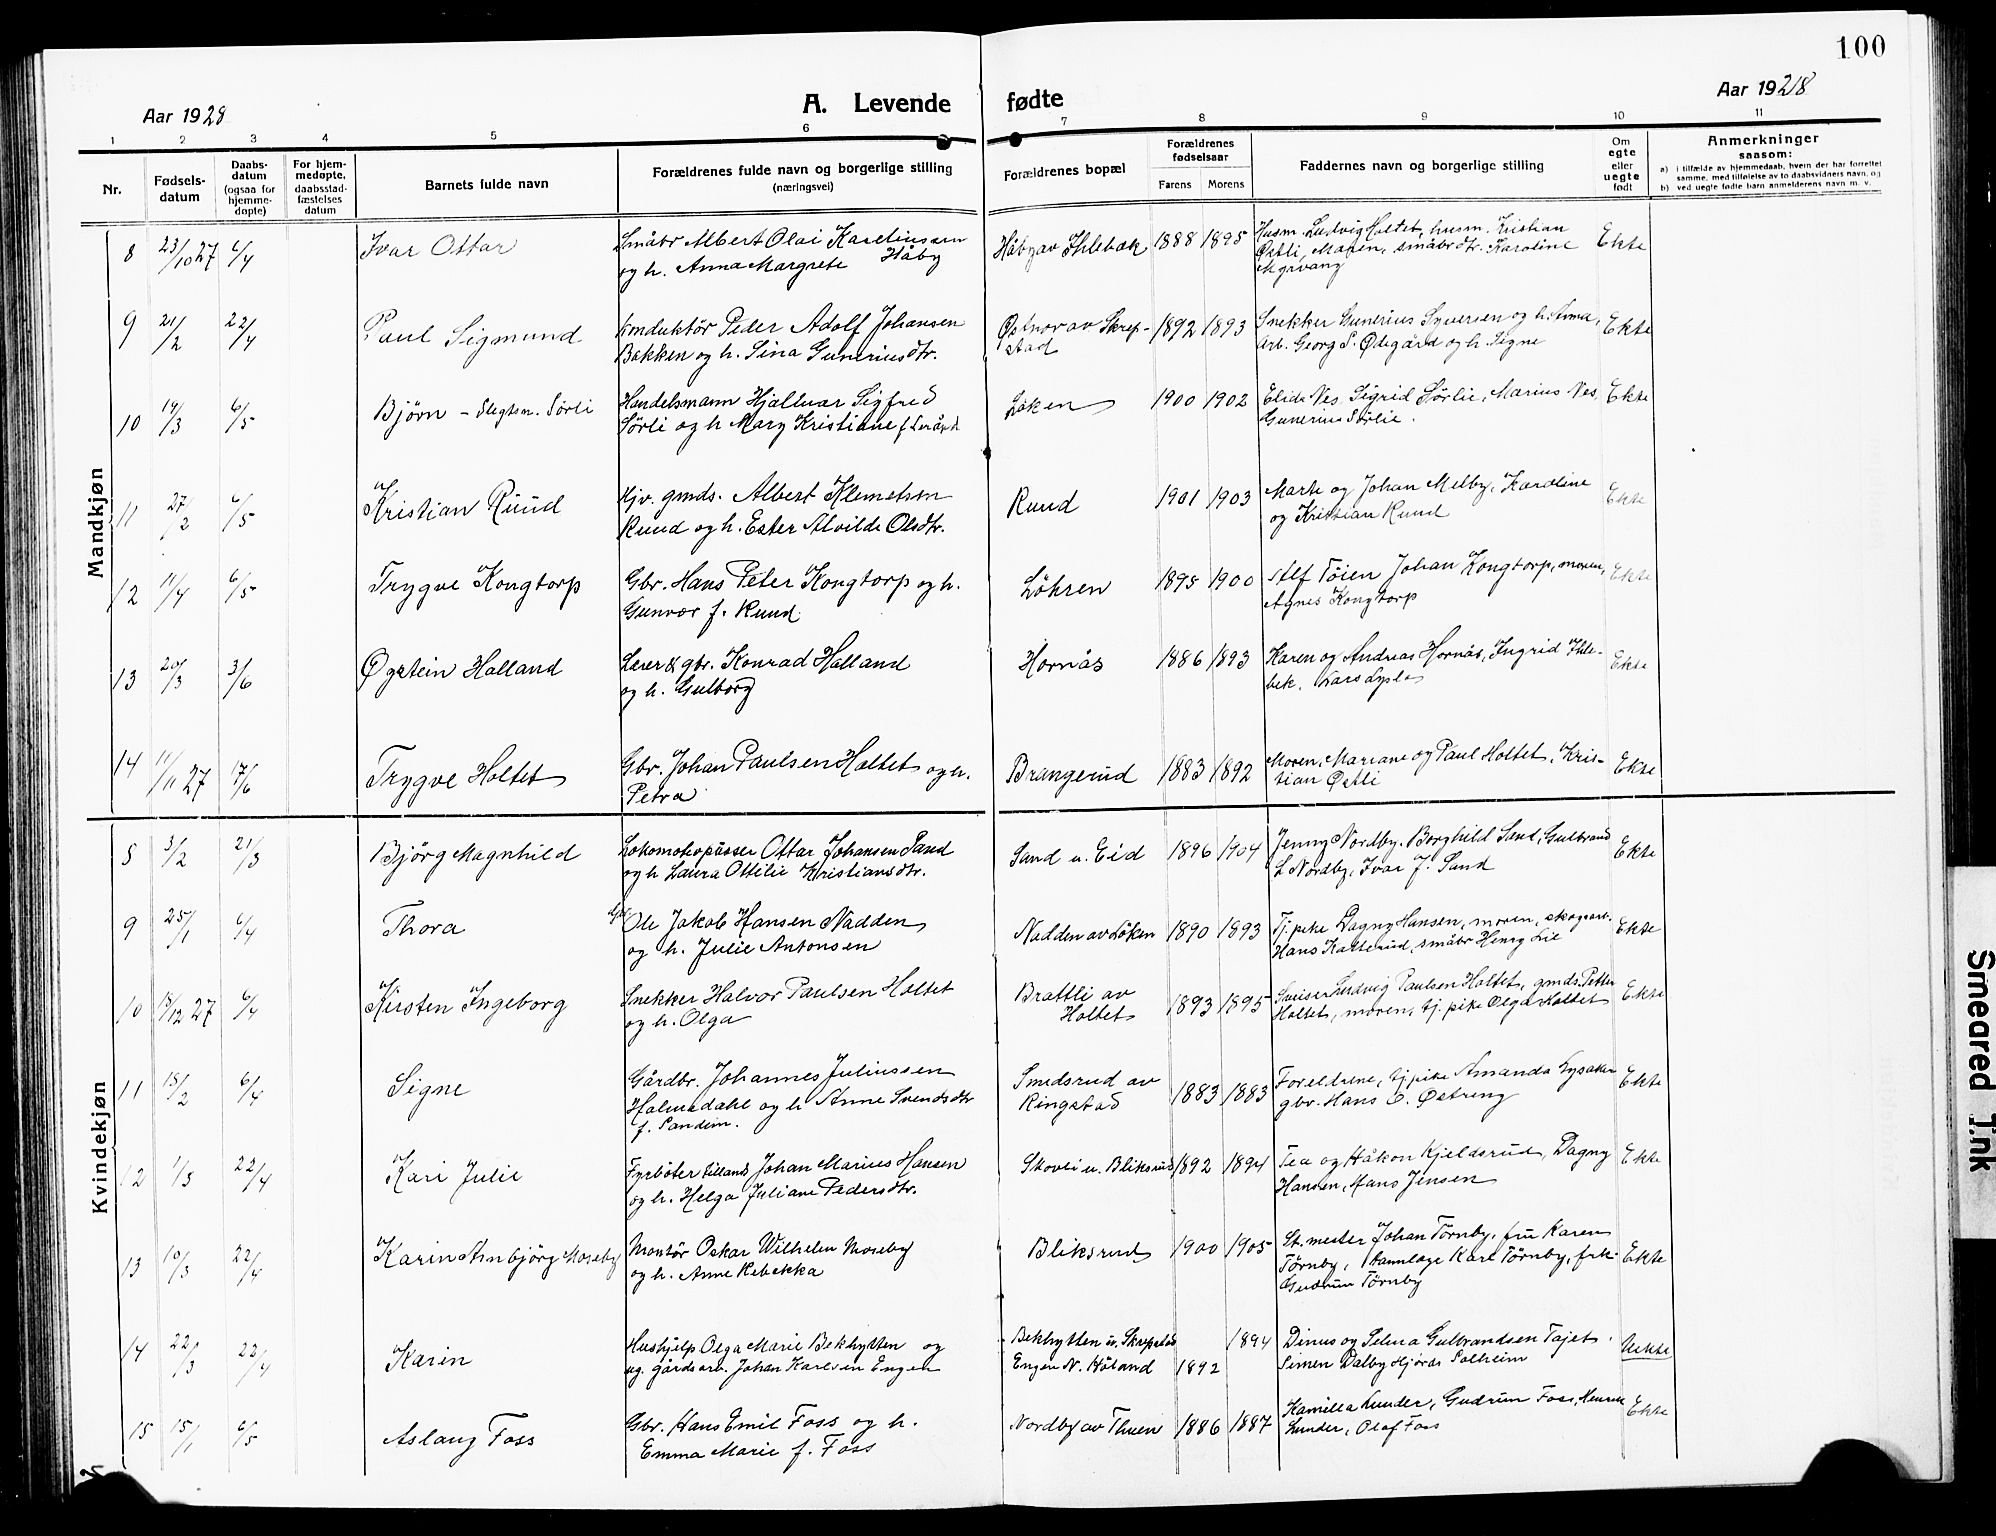 100
Aar 1928
A. Levende fødte
Aar 1928
1 2 3 4 5 6 7 8 9 10 11
Nr.
Fødsels-
datum
Daabs-
datum
(ogsaa for
hjemme-
døpte)
For hjem-
medøpte,
daabsstad-
fæstelses
datum
Barnets fulde navn
Forældrenes fulde navn og borgerlige stilling
(næringsvei)
Forældrenes bopæl
Forældrenes
fødselsaar
Farens Morens
Faddernes navn og borgerlige stilling
Om
egte
eller
uegte
født
Anmerkninger
saasom:
a) i tilfælde av hjemmedaab, hvem der har forrettet
samme, med tilføielse av to daabsvidners navn, og
b) ved uegte fødte barn anmelderens navn m. v.
Mandkjøn
8 23/10 27 6/4 Ivar Ottar
Småbr Albert Olai Kareliussen
og h. Anna Margrete Håby
Håby av Ihlebæk 1888 1895
Husm. Ludvig Holtet, husm. Kristian
Østli, Moren, småbrdtr. Karoline
Ekte
9 21/2 22/4 Paul Sigmund
Konduktör Peder Adolf Johansen
Bakken og h. Sina Guneriusdtr.
Østnor av Skrep-
stad
1892 1893
Snekker Gunerius Syversen og h. Anna,
Arb. Georg S. Ødegård og h. Signe
Ekte
10 19/3 6/5 Björn - Slegtsn. Sörli
Handelsmann Hjallvar Sigfred
Sörli og h Mary Kristiane
Löken 1900 1902
Elida Nes, Sigrid Sörlie, Marius Nes,
Gunerius Sörlie.
Ekte
11 27/2 6/5 Kristian Ruud
Kjv. gmds. Albert Klemetsen
Ruud og h. Ester Alvilde Olsdtr.
Ruud 1901 1903
Marte og Johan Melby, Karoline
og Kristian Ruud
Ekte
12 11/4 6/5 Trygve Kongtorp
Gbr. Hans Peter Kongtorp og h.
Gunvor f. Ruud
Löhren 1895 1900
Alf Töien Johan Kongtorp, moren,
Agnes Kongtorp
Ekte
13 20/3 3/6 Øystein Halland
Lærer & gbr. Konrad Halland
og h. Gulborg
Hornås 1886 1893
Karen og Andreas Hornås, Ingrid Ihle-
bek, Lars
Ekte
14 11/11 27 17/6 Trygve Holtet
Gbr. Johan Paulsen Holtet og h.
Petra
Brangerud 1883 1892
Moren, Mariane og Paul Holtet, Kris-
tian Østli
Ekte
Kvindekjøn
8 3/2 21/3 Björg Magnhild
Lokomotivpusser Ottar Johansen Sand
og h Laura Ottilie Kristiansdtr.
Sand u. Eid 1896 1904
Jenny Nordby, Borghild Sand, Gulbrand
L Nordby, Ivar J. Sand
Ekte
9 25/1 6/4 Thora
Gbr Ole Jakob Hansen Nadden
og h. Julie Antonsen
Nadden av Löken 1890 1893
Tj. pike Dagny Hansen, moren, skogsarb.
Hans Katterud, småbr Henry Lie
Ekte
10 18/12 27 6/4 Kirsten Ingeborg
Snekker Halvor Paulsen Holtet
og h. Olga
Brattli av
Holtet
1893 1895
Sveiser Ludvig Paulsen Holtet, gmds. Petter
Holtet, moren, tj. pike Olga Holtet
Ekte
11 15/2 6/4 Signe
Gårdbr. Johannes Juliussen
Holmedahl og h Anne Svendsdtr
f. Sandem.
Smedsrud av
Ringstad
1883 1883
Foreldrene, tj pike Amanda Lysaker
gbr. Hans O. Østreng
Ekte
12 1/3 22/4 Kari Julie
Fyrböter Johan Marius Hansen
og h. Helga Juliane Pedersdtr.
Skovli u. Bliksrud 1892 1894
Tea og Håkon Kjeldsrud, Dagny
Hansen, Hans Jensen
Ekte
13 10/3 22/4 Karin Arnbjörg Moseby
Montör Oskar Wilhelm Moseby
og h. Anne Rebekka
Bliksrud 1900 1905
St. mester Johan Törnby, fru Karen
Törnby, tannlæge Karl Törnby, frk.
Gudrun Törnby
Ekte
14 22/3 22/4 Karin
Hushjelp Olga Marie Bekhytten og
ug. gårdsarb. Johan Karlsen Engen
Bekhytten u. Skrepstad 1894
Engen N. Höland 1892
Dinus og Selma Gulbrandsen Tajet,
Simen Dalby Hjördis Solheim
Uekte
15 15/1 6/5 Aslaug Foss
Gbr. Hans Emil Foss og h.
Emma Marie f. Foss
Nordby av Thuen 1886 1887
Kamilla Lunder, Gudrun Foss, Henrik
Lunder, Olaf Foss
Ekte
Smeared Ink